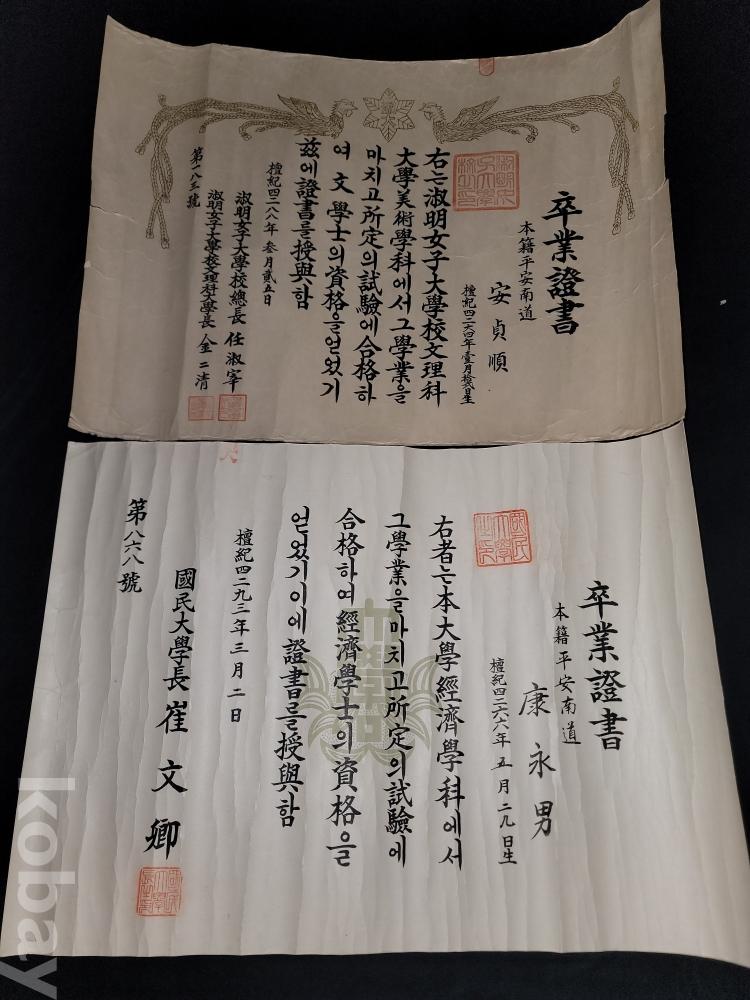 卒業證書
本籍平安南道
安貞順
檀紀四二六四年壹月拾貳日生
右는淑明女子大學校文理科
大學美術學科에서그學業을
마치고所定의試驗에合格하
여文學士의資格을얻었기
玆에證書를授與함
檀紀四二八八年叁月貳五日
淑明女子大學校總長任淑宰
淑明女子大學校文理科大學長金二清
第一八三號
卒業證書
本籍平安南道
康永男
檀紀四二六六年五月二九日生
右者는本大學經濟學科에서
그學業을마치고所定의試驗에
合格하여經濟學士의資格을
얻었기이에證書를授與함
檀紀四二九三年三月二日
國民大學長崔文卿
第八六八號
kobay